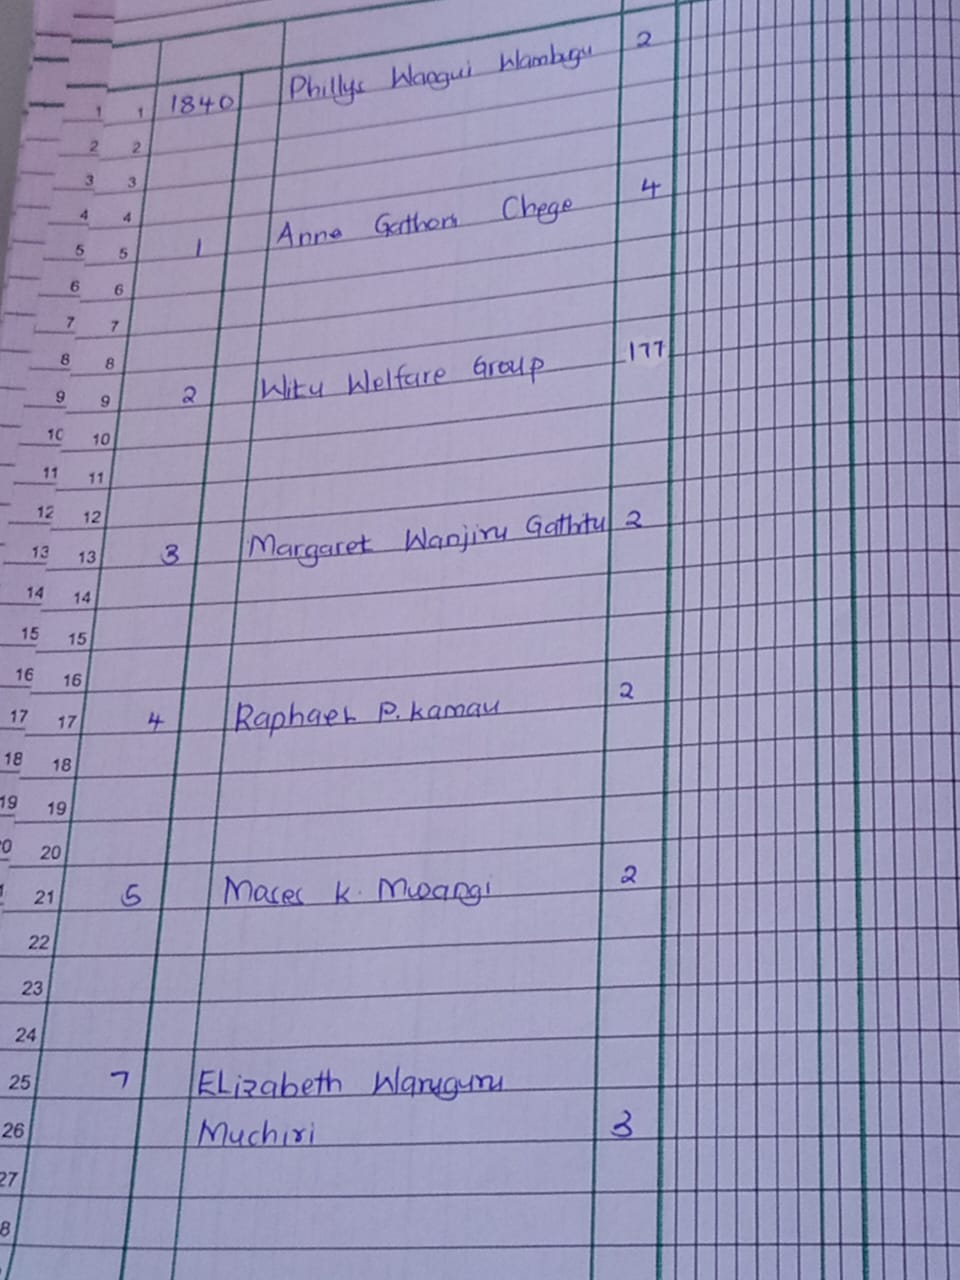 1 1 1840 Phillys Wangui Wambugu 2
2 2
3 3
4 4
5 5 1 Anne Chege 4
6 6
7 7
8 8
9 9 2 Witu Welfare Group 177
10 10
11 11
12 12
13 13 3 Margaret Wanjiru Gathitu 2
14 14
15 15
16 16
17 17 4 Raphael P. Kamau 2
18 18
19 19
20
21 5 Moses K. Mwangi 2
22
23
24
25 7 Elizabeth Waruguru
26 Muchiri 3
27
8